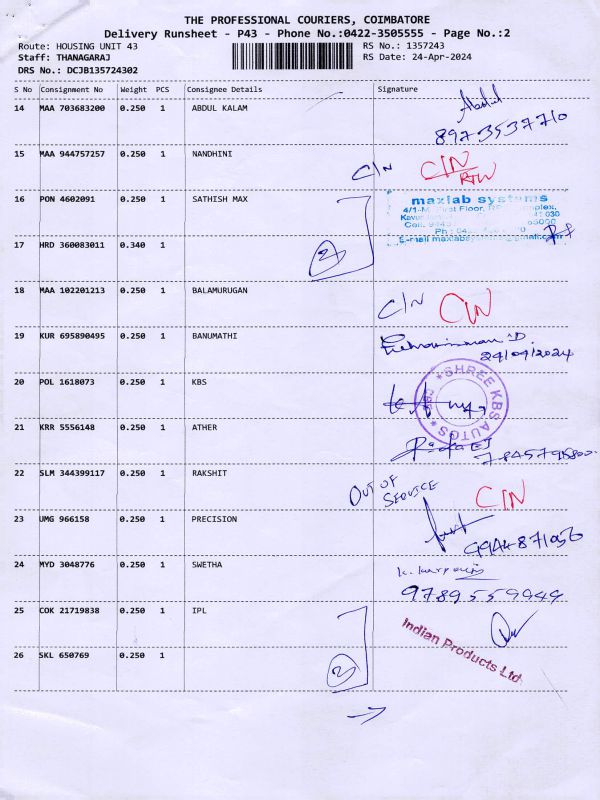 THE PROFESSIONAL COURIERS, COIMBATORE
Delivery Runsheet - P43 - Phone No.:0422-3505555 - Page No.:2
Route: HOUSING UNIT 43 RS No.: 1357243
Staff: THANAGARAJ RS Date: 24-Apr-2024
DRS No.: DCJB135724302
S No Consignment No Weight PCS Consignee Details Signature
14 MAA 703683200 0.250 1 ABDUL KALAM Abdul
8973537710
15 MAA 944757257 0.250 1 NANDHINI C/N C/N
RTN
16 PON 4602091 0.250 1 SATHISH MAX maxlab systems
4/1- First Floor, complex,
Ph :
E-mail
17 HRD 360083011 0.340 1 2
18 MAA 102201213 0.250 1 BALAMURUGAN C/N C/N
19 KUR 695890495 0.250 1 BANUMATHI
24/04/2024
20 POL 1618073 0.250 1 KBS
* SHREE KBS AUTOS *
21 KRR 5556148 0.250 1 ATHER
22 SLM 344399117 0.250 1 RAKSHIT OUT OF
SERVICE C/N
23 UMG 966158 0.250 1 PRECISION
24 MYD 3048776 0.250 1 SWETHA
9789559949
25 COK 21719838 0.250 1 IPL
Indian Products Ltd
26 SKL 650769 0.250 1 2